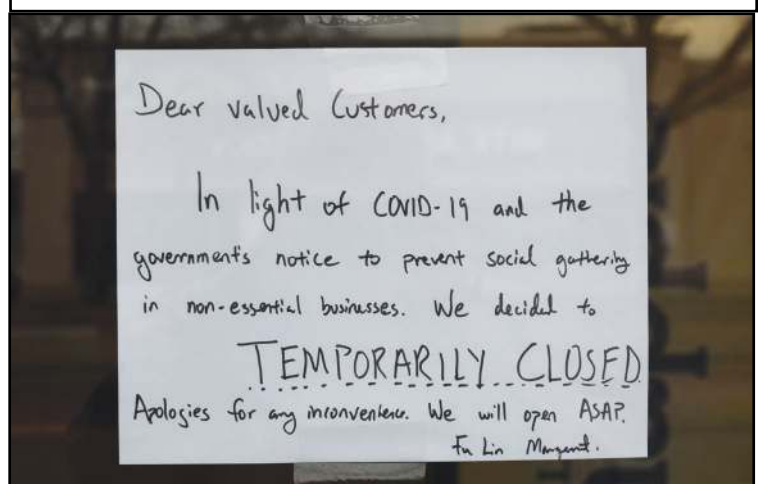 Dear valued Customers,
In light of COVID-19 and the
government's notice to prevent social gathering
in non-essential businesses. We decided to
TEMPORARILY CLOSED
Apologies for any inconvenience. We will open ASAP.
Fu Lin Mangement.